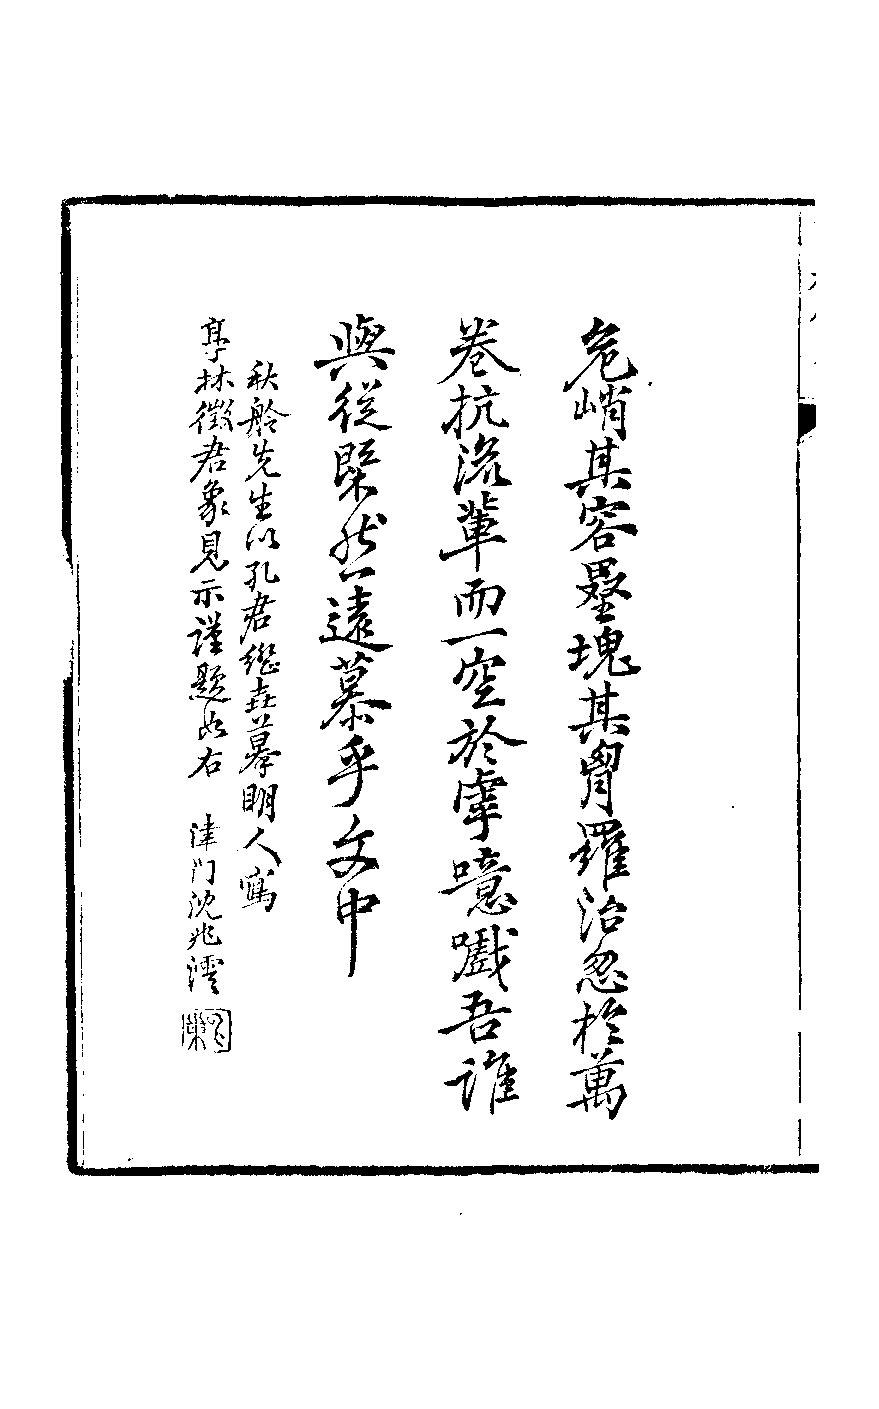 危峭其容壘塊其胷羅治忽於萬
卷抗流輩而一空於虖噫戲吾誰
與從槩然遠慕乎文中
秋舲先生以孔君繼壵摹明人寫
亭林徵君象見示謹題如右　津門沈兆澐